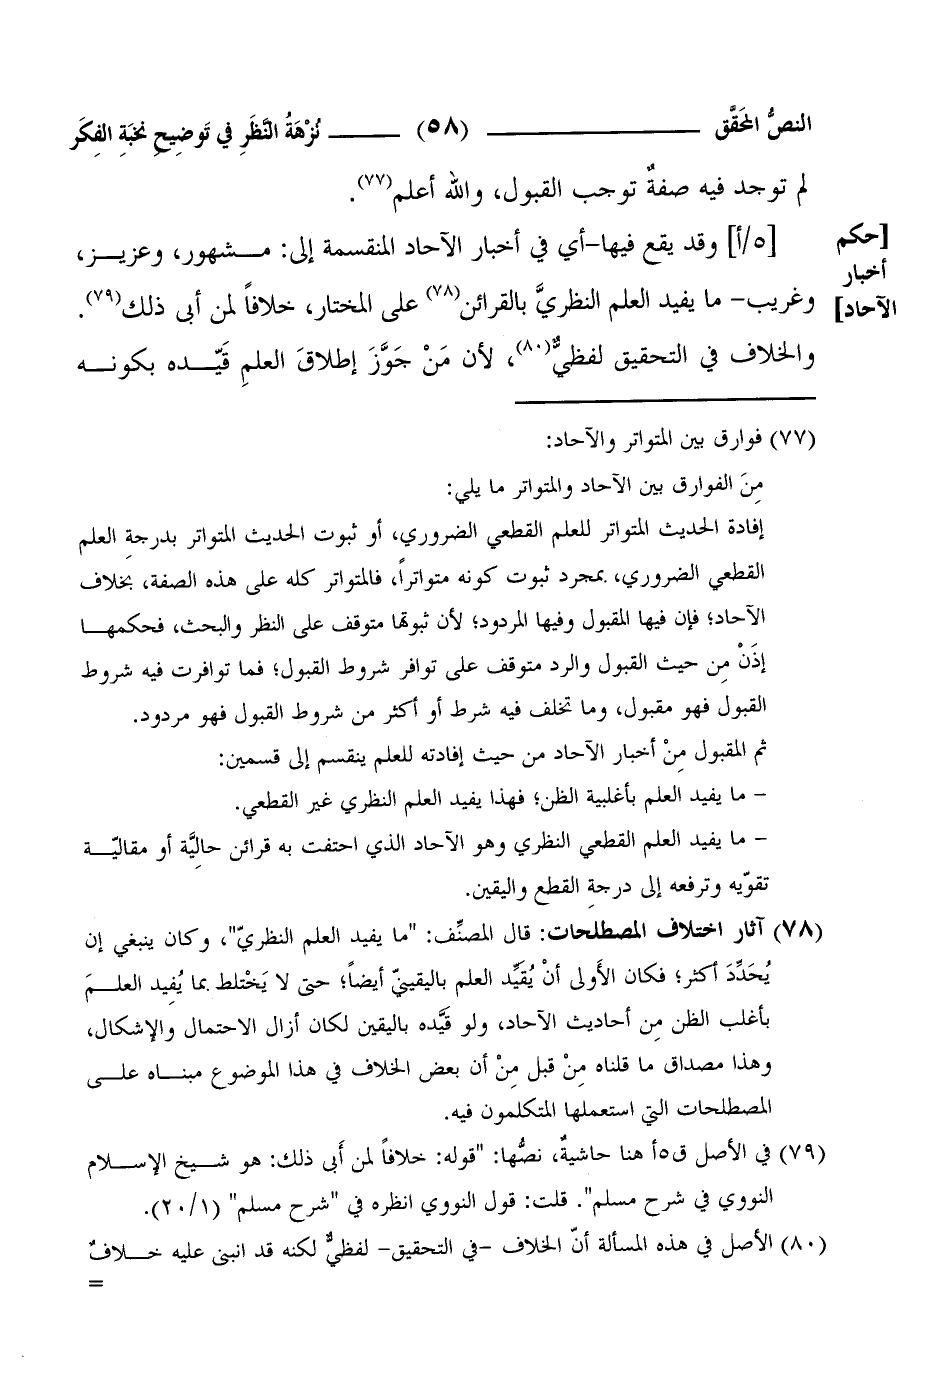 النصُّ المحَقَّق ــــــــــــ (٥٨) ــــــــ نُزْهَةُ النَّظَرِ في تَوضِيحِ نخبَةِ الفِكَر
لم توجد فيه صفةٌ توجب القبول، والله أعلم(٧٧).
[حكم أخبار الآحاد]
[٥/أ] وقد يقع فيها-أي في أخبار الآحاد المنقسمة إلى: مشهور، وعزيز،
وغريب- ما يفيد العلم النظريَّ بالقرائن(٧٨) على المختار، خلافاً لمن أبى ذلك(٧٩).
والخلاف في التحقيق لفظيٌّ(٨٠)، لأن مَنْ جَوَّزَ إطلاقَ العلمِ قَيَّده بكونه
(٧٧) فوارق بين المتواتر والآحاد:
مِنَ الفوارق بين الآحاد والمتواتر ما يلي:
إفادة الحديث المتواتر للعلم القطعي الضروري، أو ثبوت الحديث المتواتر بدرجةِ العلم
القطعي الضروري، بمجرد ثبوت كونه متواتراً، فالمتواتر كله على هذه الصفة، بخلاف
الآحاد؛ فإن فيها المقبول وفيها المردود؛ لأن ثبوتها متوقف على النظر والبحث، فحكمها
إذَنْ مِن حيث القبول والرد متوقف على توافر شروط القبول؛ فما توافرت فيه شروط
القبول فهو مقبول، وما تخلف فيه شرط أو أكثر من شروط القبول فهو مردود.
ثم المقبول مِنْ أخبار الآحاد من حيث إفادته للعلم ينقسم إلى قسمين:
- ما يفيد العلم بأغلبية الظن؛ فهذا يفيد العلم النظري غير القطعي.
- ما يفيد العلم القطعي النظري وهو الآحاد الذي احتفت به قرائن حاليَّة أو مقاليّة
تقوّيه وترفعه إلى درجةِ القطع واليقين.
(٧٨) آثار اختلاف المصطلحات: قال المصنِّف: "ما يفيد العلم النظريّ"، وكان ينبغي إن
يُحَدِّدَ أكثر؛ فكان الأَولى أنْ يُقَيِّد العلم باليقينيّ أيضاً؛ حتى لا يَخْتلط بما يُفِيد العلمَ
بأغلب الظن مِن أحاديث الآحاد، ولو قَيَّده باليقين لكان أزال الاحتمال والإشكال،
وهذا مصداق ما قلناه مِنْ قبل مِنْ أن بعض الخلاف في هذا الموضوع مبناه على
المصطلحات التي استعملها المتكلمون فيه.
(٧٩) في الأصل ق٥أ هنا حاشيةٌ، نصُّها: "قوله: خلافاً لمن أَبى ذلك: هو شيخ الإسلام
النووي في شرح مسلم". قلت: قول النووي انظره في "شرح مسلم" (٢٠/١).
(٨٠) الأصل في هذه المسألة أنّ الخلاف -في التحقيق- لفظيٌّ لكنه قد انبنى عليه خلافٌ
=